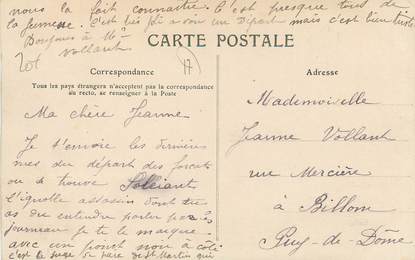 nous la fait connaitre. C'est presque tous de
la jeunesse. C'est très joli a voir un départ mais c'est bien triste
Bonjour à Mme
Vollant
CARTE POSTALE
Correspondance
Tous les pays étrangers n'acceptent pas la correspondance
au recto, se renseigner à la Poste
Ma chère Jeanne
Je t'envoie les dernières
mes du départ des forçats
ou se trouve Soleilant
l'ignoble assassin dont tu
as du entendre parler par les
journeaux je te le marque
avec un point noir à côté
c'est le juge de paix de St Martin qui
Adresse
Mademoiselle
Jeanne Vollant
rue Mercière
à Billom
Puy-de-Dôme